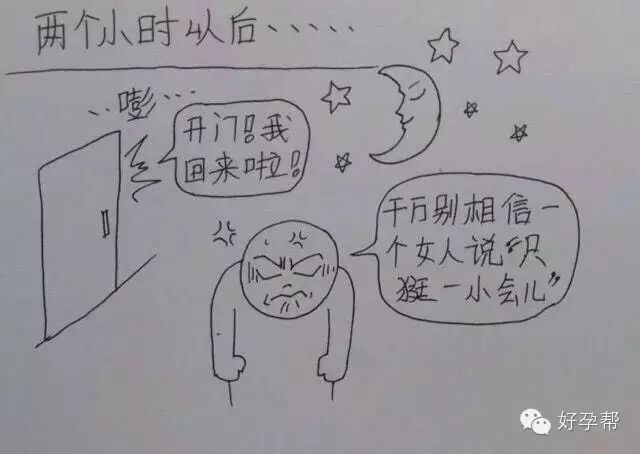 两个小时以后·····
··嘭···
开门!我
回来啦!
千万别相信一
个女人说“只
逛一小会儿”
好孕帮